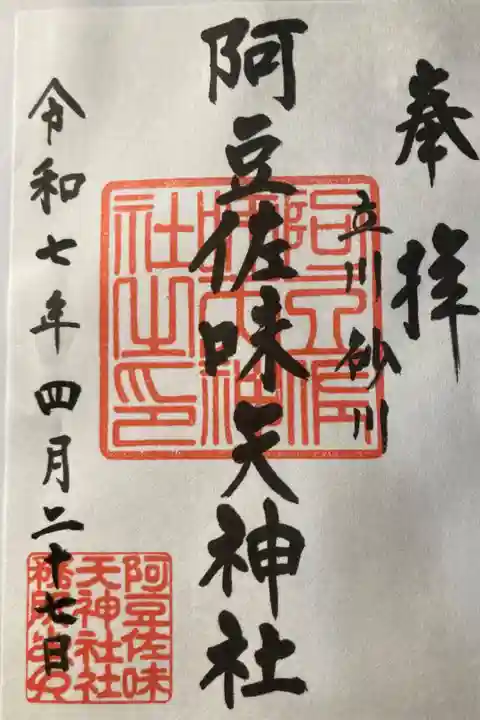 奉拝
立川砂川
阿豆佐味天神社
阿豆佐味天神社之印
令和七年四月二十七日
阿豆佐味
天神社社
務所之印